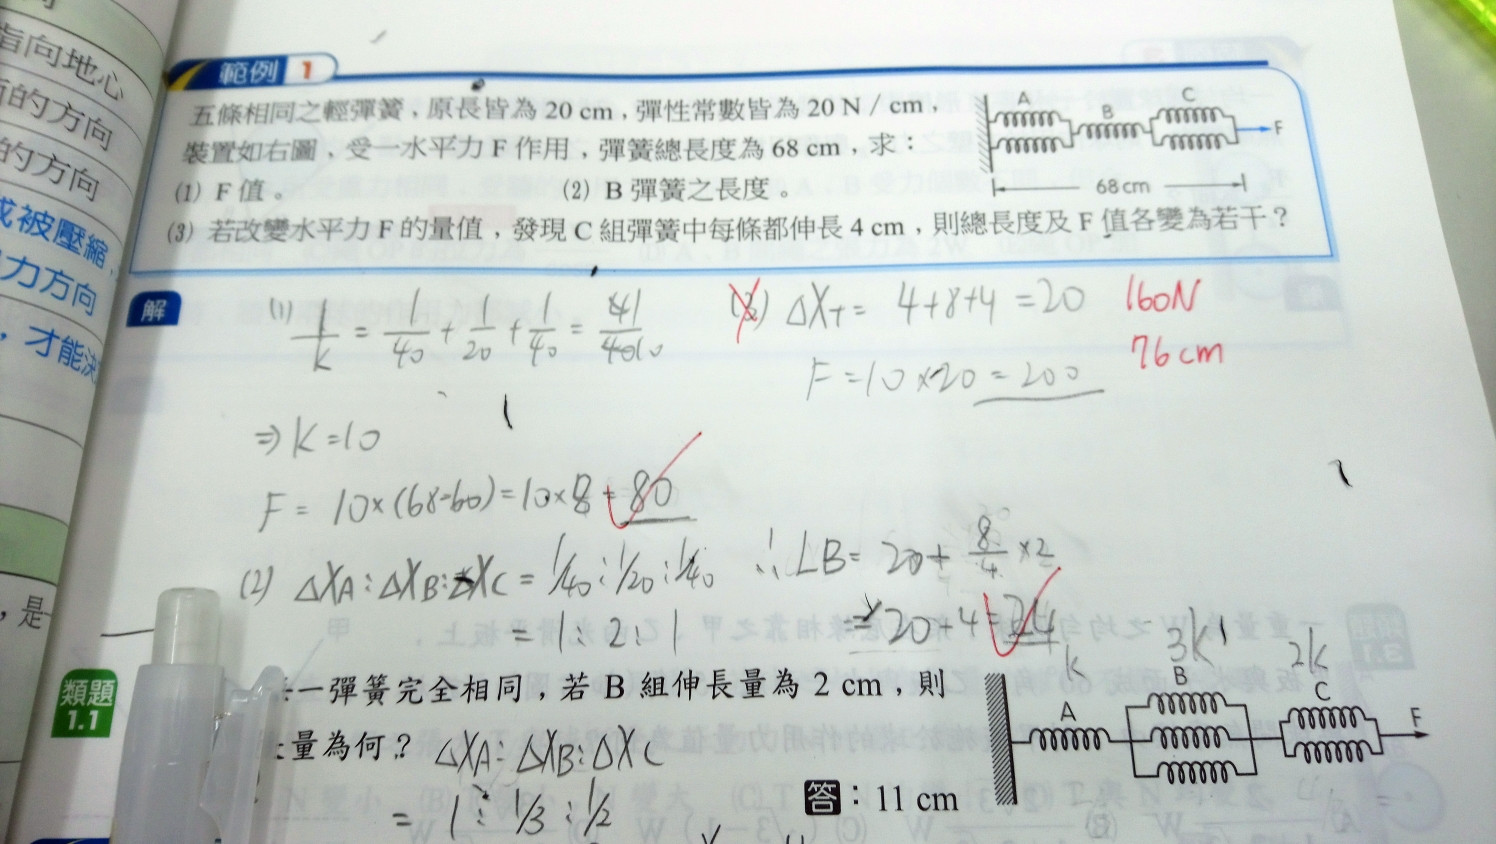 指向地心
的方向
的方向
或被壓縮，
力方向
，才能決
，是
範例 1
五條相同之輕彈簧，原長皆為 20 cm，彈性常數皆為 20 N / cm，
裝置如右圖，受一水平力 F 作用，彈簧總長度為 68 cm，求：
(1) F 值。 (2) B 彈簧之長度。
(3) 若改變水平力 F 的量值，發現 C 組彈簧中每條都伸長 4 cm，則總長度及 F 值各變為若干？
A B C
F
68 cm
解
(1) 1/k = 1/40 + 1/20 + 1/40 = 41/4010
⇒ K = 10
F = 10×(68-60) = 10×8 = 80
(2) ΔXA : ΔXB : ΔXC = 1/40 : 1/20 : 1/40
= 1 : 2 : 1
∴ LB = 20 + 8/4 ×2
= 20+4 = 24
(3) ΔXT = 4+8+4 = 20
F = 10×20 = 200
160N
76 cm
類題
1.1
一彈簧完全相同，若 B 組伸長量為 2 cm，則
量為何？
ΔXA : ΔXB : ΔXC
= 1 : 1/3 : 1/2
答：11 cm
k 3k 2k
A B C
F